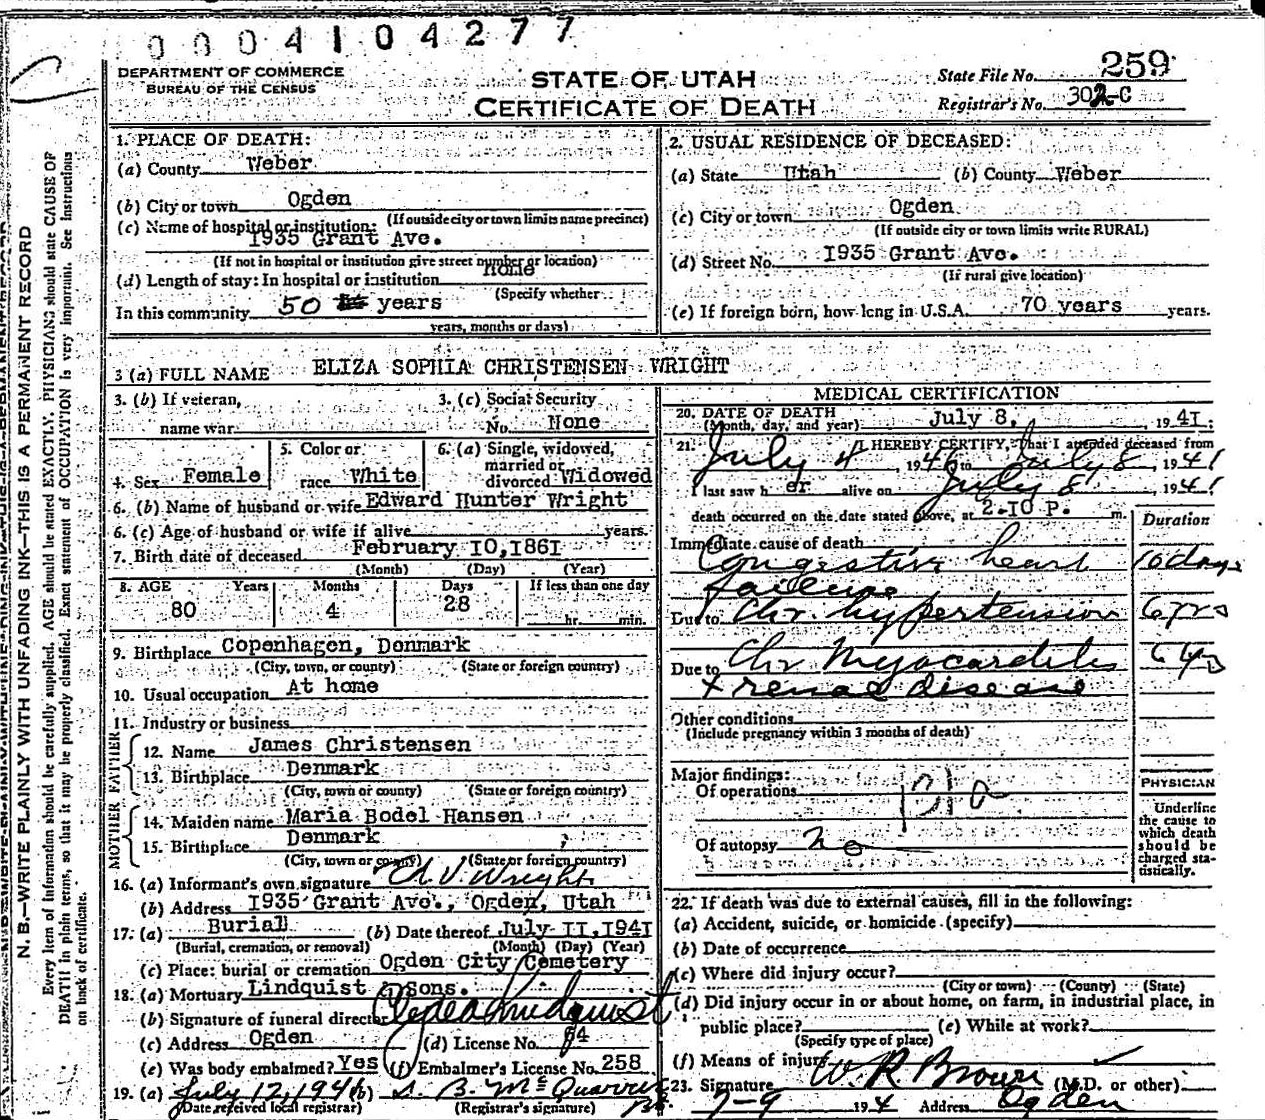 0004104277
DEPARTMENT OF COMMERCE
BUREAU OF THE CENSUS
STATE OF UTAH
CERTIFICATE OF DEATH
State File No. 259
Registrar's No. 302-C
N. B.—WRITE PLAINLY WITH UNFADING INK—THIS IS A PERMANENT RECORD
Every item of information should be carefully supplied. AGE should be stated EXACTLY. PHYSICIANS should state CAUSE OF
DEATH in plain terms, so that it may be properly classified. Exact statement of OCCUPATION is very important. See instructions
on back of certificate.
1. PLACE OF DEATH:
(a) County Weber
(b) City or town Ogden
(If outside city or town limits name precinct)
(c) Name of hospital or institution:
1935 Grant Ave.
(If not in hospital or institution give street number or location)
(d) Length of stay: In hospital or institution none
(Specify whether
In this community 50 years
years, months or days)
2. USUAL RESIDENCE OF DECEASED:
(a) State Utah (b) County Weber
(c) City or town Ogden
(If outside city or town limits write RURAL)
(d) Street No. 1935 Grant Ave.
(If rural give location)
(e) If foreign born, how long in U.S.A. 70 years years.
3 (a) FULL NAME ELIZA SOPHIA CHRISTENSEN WRIGHT
3. (b) If veteran,
name war
3. (c) Social Security
No. None
4. Sex Female
5. Color or
race White
6. (a) Single, widowed,
married or
divorced Widowed
6. (b) Name of husband or wife Edward Hunter Wright
6. (c) Age of husband or wife if alive years.
7. Birth date of deceased February 10, 1861
(Month) (Day) (Year)
8. AGE Years Months Days If less than one day
80 4 28 hr. min.
9. Birthplace Copenhagen, Denmark
(City, town, or county) (State or foreign country)
10. Usual occupation At home
11. Industry or business
FATHER
12. Name James Christensen
13. Birthplace Denmark
(City, town or county) (State or foreign country)
MOTHER
14. Maiden name Maria Bodel Hansen
15. Birthplace Denmark
(City, town or county) (State or foreign country)
16. (a) Informant's own signature Wright
(b) Address 1935 Grant Ave., Ogden, Utah
17. (a) Burial (b) Date thereof July 11, 1941
(Burial, cremation, or removal) (Month) (Day) (Year)
(c) Place: burial or cremation Ogden City Cemetery
18. (a) Mortuary Lindquist & Sons.
(b) Signature of funeral director Lindquist
(c) Address Ogden (d) License No. 64
(e) Was body embalmed? Yes (f) Embalmer's License No. 258
19. (a) July 12, 1941 (b)
(Date received local registrar) (Registrar's signature)
MEDICAL CERTIFICATION
20. DATE OF DEATH
(Month, day, and year) July 8, 1941.
21. I HEREBY CERTIFY, that I attended deceased from
July 4, 1941 to July 8, 1941
I last saw her alive on July 8, 1941
death occurred on the date stated above, at 2.10 P. m.
Duration
Immediate cause of death
Congestive heart 10 days
failure
Due to Chr. hypertension 6 yrs
Due to Chr Myocarditis 6 yrs
+ renal disease
Other conditions
(Include pregnancy within 3 months of death)
Major findings:
Of operations
131a
Of autopsy no
PHYSICIAN
Underline
the cause to
which death
should be
charged sta-
tistically.
22. If death was due to external causes, fill in the following:
(a) Accident, suicide, or homicide (specify)
(b) Date of occurrence
(c) Where did injury occur?
(City or town) (County) (State)
(d) Did injury occur in or about home, on farm, in industrial place, in
public place? (e) While at work?
(Specify type of place)
(f) Means of injury
23. Signature W. R. Brown (M.D. or other)
7-9 194 Address Ogden